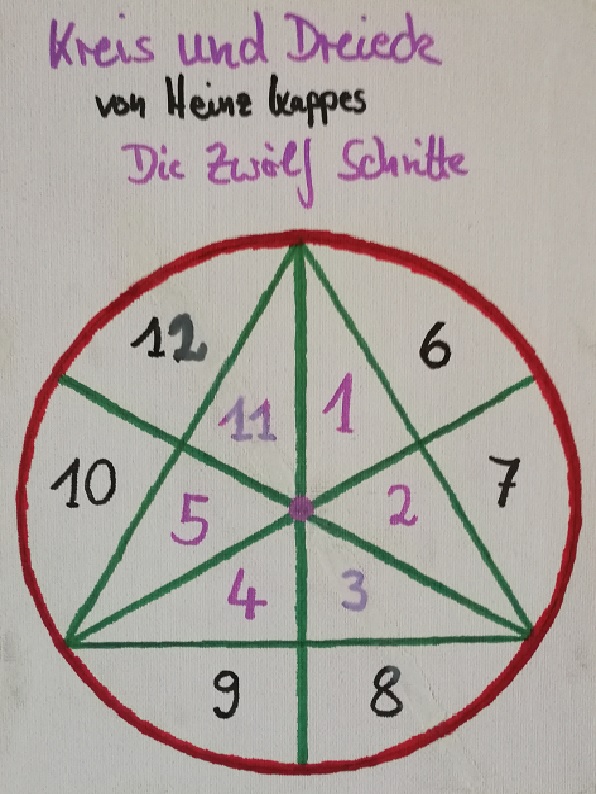 Kreis und Dreieck
von Heinz Kappes
Die Zwölf Schritte
12 6
11 1
10 5 2 7
4 3
9 8